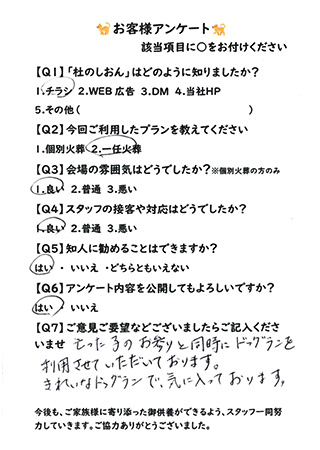 お客様アンケート
該当項目に〇をお付けください
【Q1】「杜のしおん」はどのように知りましたか？
1.チラシ 2.WEB広告 3.DM 4.当社HP
5.その他(　　　　　　　　)
【Q2】今回ご利用したプランを教えてください
1.個別火葬 2.一任火葬
【Q3】会場の雰囲気はどうでしたか？※個別火葬の方のみ
1.良い 2.普通 3.悪い
【Q4】スタッフの接客や対応はどうでしたか？
1.良い 2.普通 3.悪い
【Q5】知人に勧めることはできますか？
はい ・ いいえ ・どちらともいえない
【Q6】アンケート内容を公開してもよろしいですか？
はい ・ いいえ
【Q7】ご意見ご要望などございましたらご記入くださ
いませ 亡った子のお参りと同時にドッグランを
利用させていただいております。
きれいなドッグランで、気に入っております。
今後も、ご家族様に寄り添った御供養ができるよう、スタッフ一同努
力していきます。ご協力ありがとうございました。